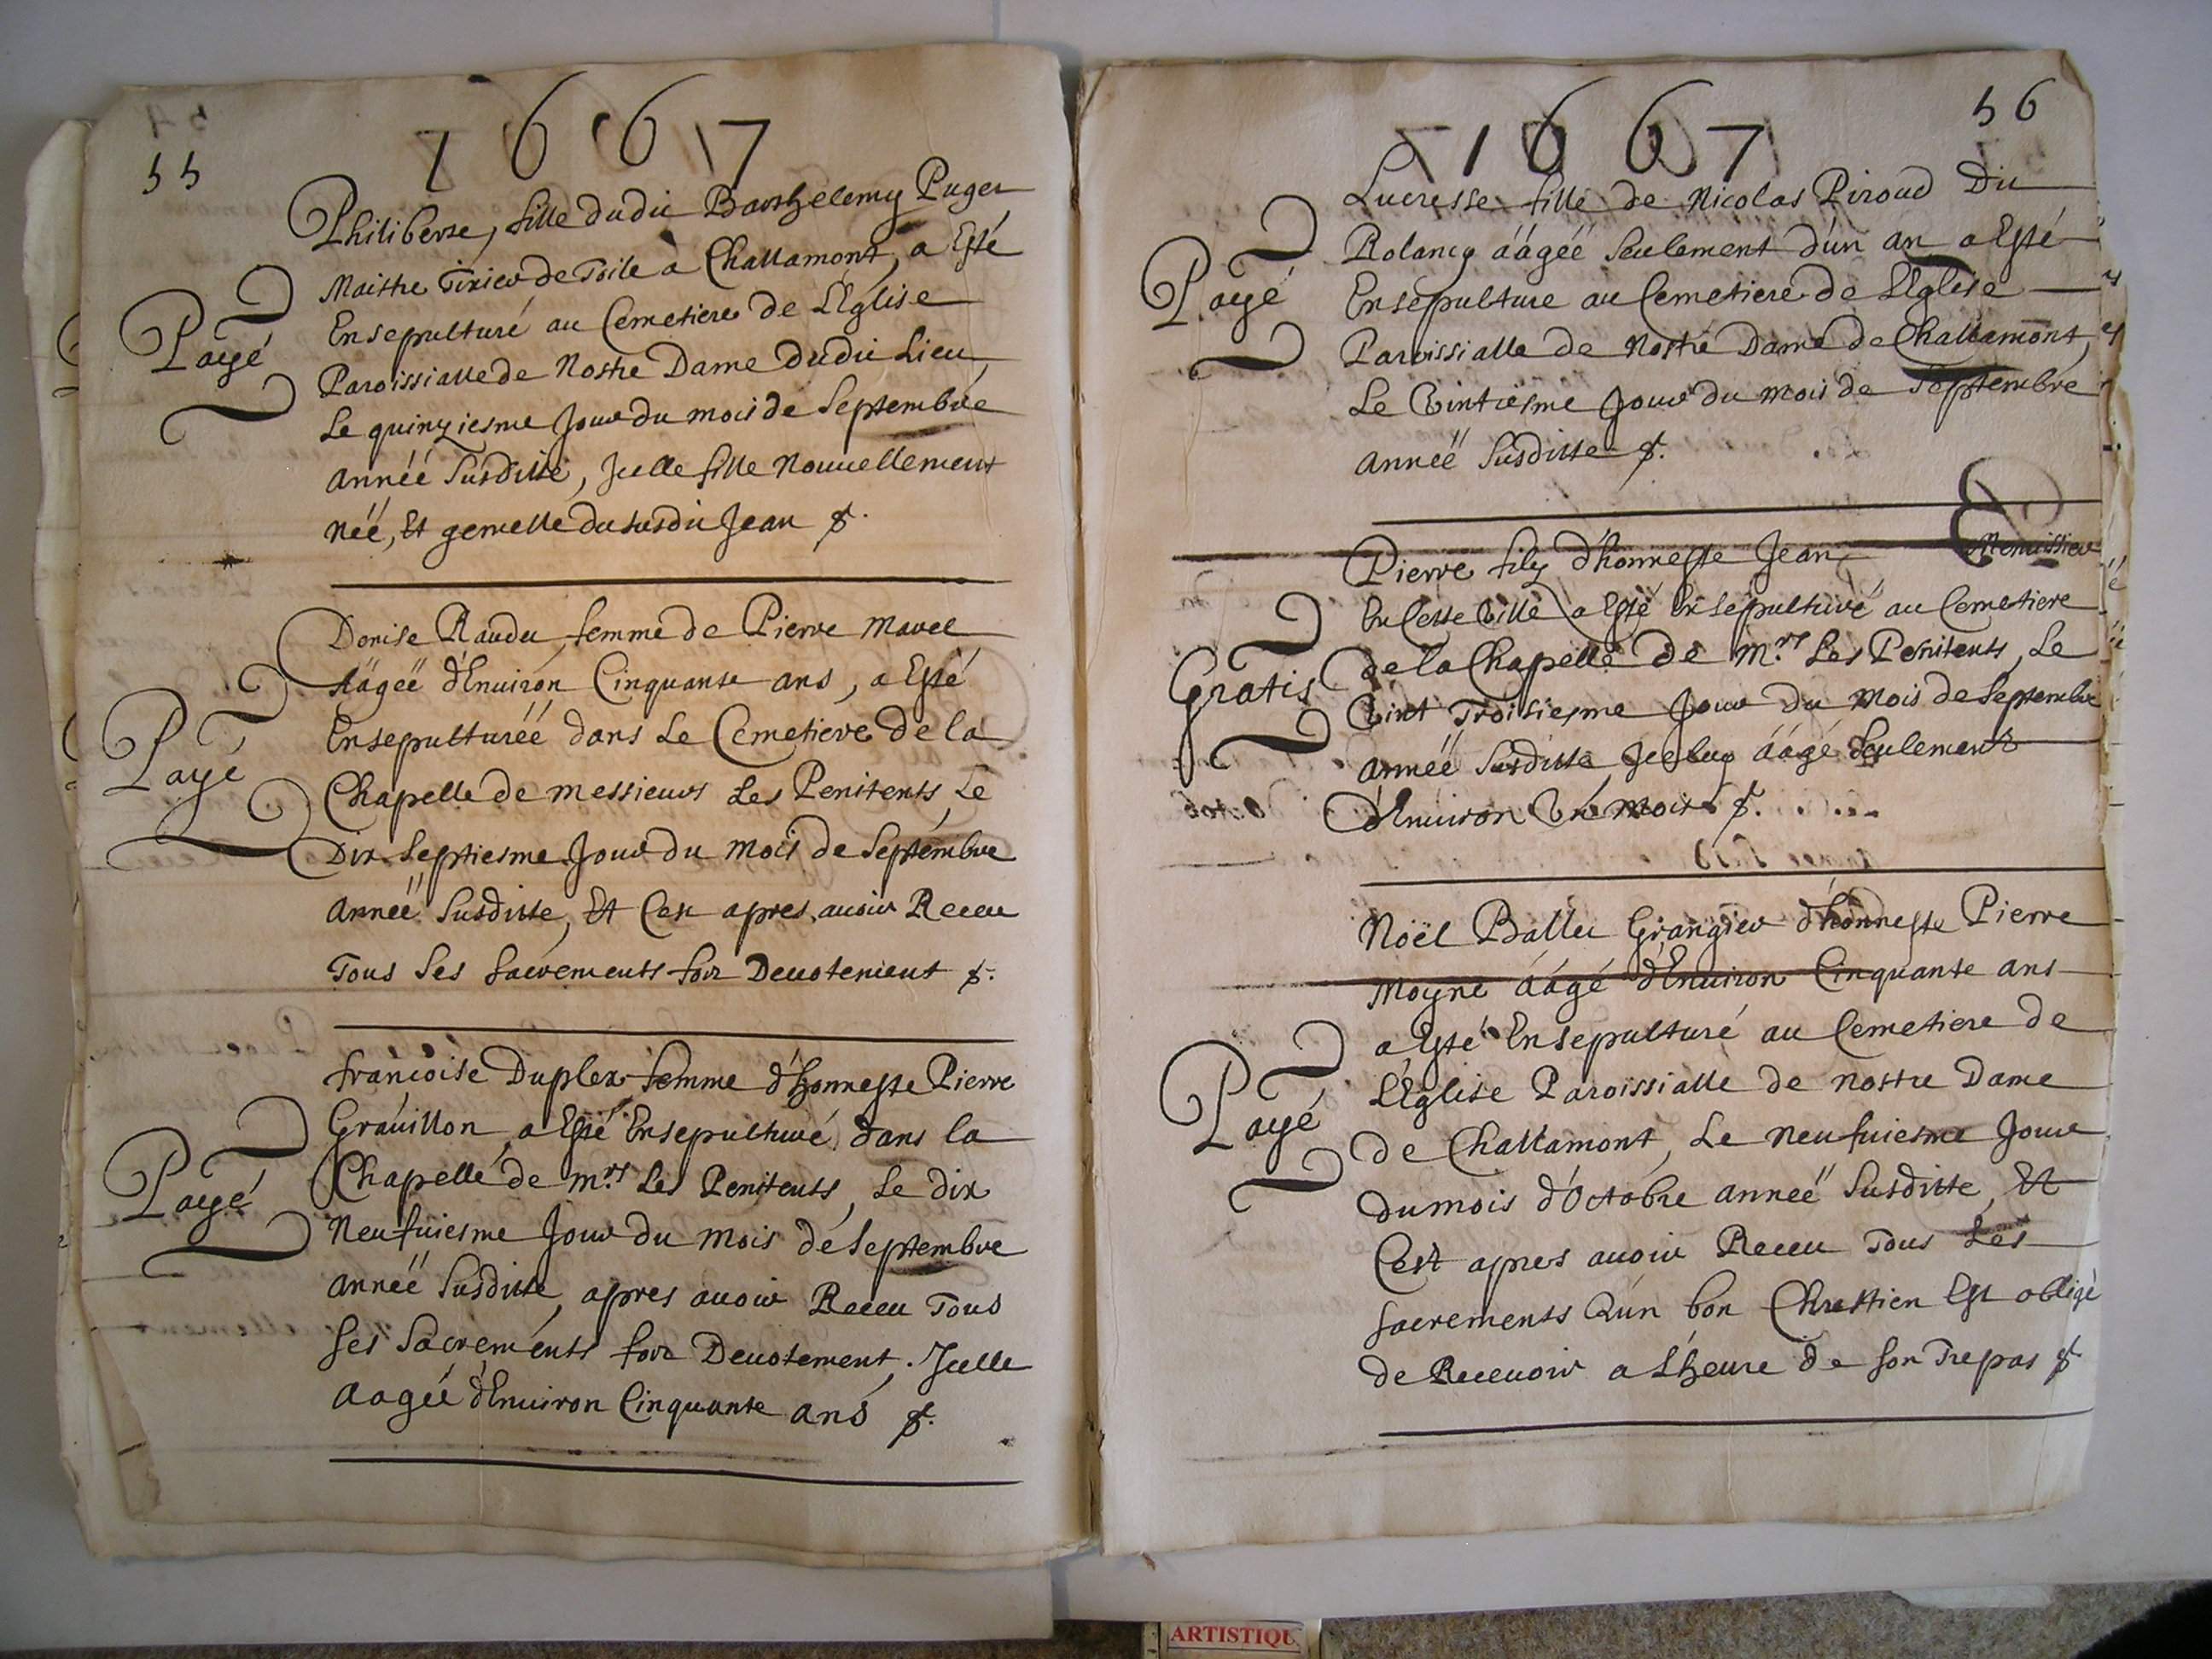 55
1667
Philiberte, fille dudit Barthelemy Puger
Maistre Tixier de Toile a Challamont, a Esté
Ensepulturé au Cemetiere de L'Eglise
Payé
Paroissialle de Nostre Dame dudit Lieu,
Le quinziesme Jour du mois de Septembre
année Susditte, Icelle fille Nouuellement
néé, Et gemelle du susdit Jean &.
Denise Raudu femme de Pierre Marel
Aägeë d'Enuiron Cinquante ans, a Esté
Ensepulturéé dans Le Cemetiere de la
Payé
Chapelle de messieurs Les Penitents, Le
Dix Septiesme Jour du mois de Septembre
Anneë Susditte, Et C'est apres auoir Receu
Tous Ses sacrements fort Deuotement &.
francoise Duplex femme d'honneste Pierre
Grauillon, a Esté Ensepulturé dans la
Payé
Chapelle de m.rs Les Penitents, Le dix
Neufuiesme Jour du mois de Septembre
anneë Susditte, apres auoir Receu Tous
Ses Sacrements fort Deuotement. Icelle
Aagéé d'Enuiron Cinquante ans &.
56
1667
Lucresse fille de Nicolas Piroud Du
Rolancy äägéë Seulement d'un an a Esté
Payé
Ensepulture au Cemetiere de L'Eglise
Paroissialle de Nostre Dame de Challamont,
Le Vintiesme Jour du mois de Septembre
anneë Susditte &.
Pierre filz d'honneste Jean Menuissier
En Cette Ville a Esté Ensepulturé au Cemetiere
Gratis
de la Chapelle de m.rs Les Penitents, Le
Vint Troisiesme Jour Du mois de Septembre
anneë Susditte Iceluy äägé Seulement
d'Enuiron Un mois &.
Noël Ballu Grangier d'honneste Pierre
Moyne äägé d'Enuiron Cinquante ans
a Esté Ensepulturé au Cemetiere de
Payé
L'Eglise Paroissialle de nostre Dame
de Challamont, Le neufuiesme Jour
du mois d'Octobre anneë Susditte, Et
C'est apres auoir Receu Tous Les
sacrements Qu'un bon Chrestien Est obligé
de Receuoir a L'heure de son Trepas &
ARTISTIQU